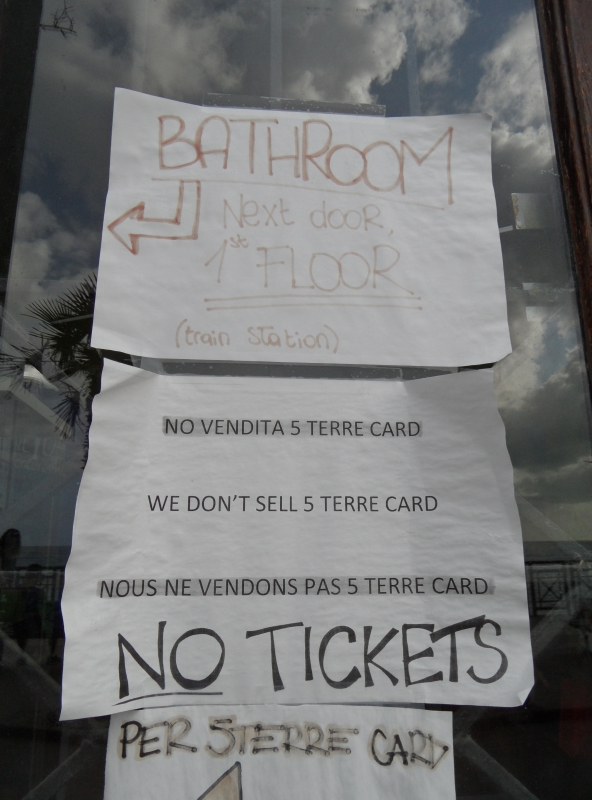 BATHROOM
Next door,
1st FLOOR
(train station)
NO VENDITA 5 TERRE CARD
WE DON'T SELL 5 TERRE CARD
NOUS NE VENDONS PAS 5 TERRE CARD
NO TICKETS
PER 5TERRE CARD